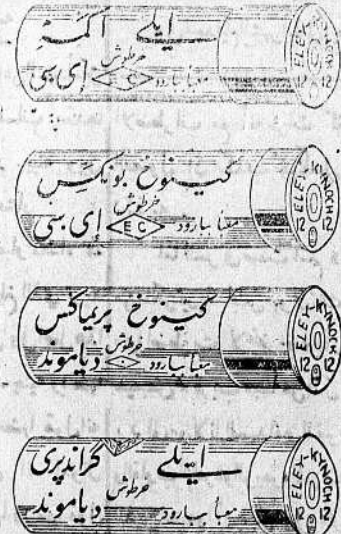 ايلے اكمـ
خرطوش
معبأ ببارود EC إى سى
ELEY-KYNOCH
12 12
كينوخ بونكس
خرطوش
معبأ ببارود EC إى سى
ELEY-KYNOCH
12 12
كينوخ پريماكس
خرطوش
معبأ ببارود دياموند
ELEY-KYNOCH
12 12
ايلے گراندپرى
خرطوش
معبأ ببارود دياموند
ELEY-KYNOCH
12 12